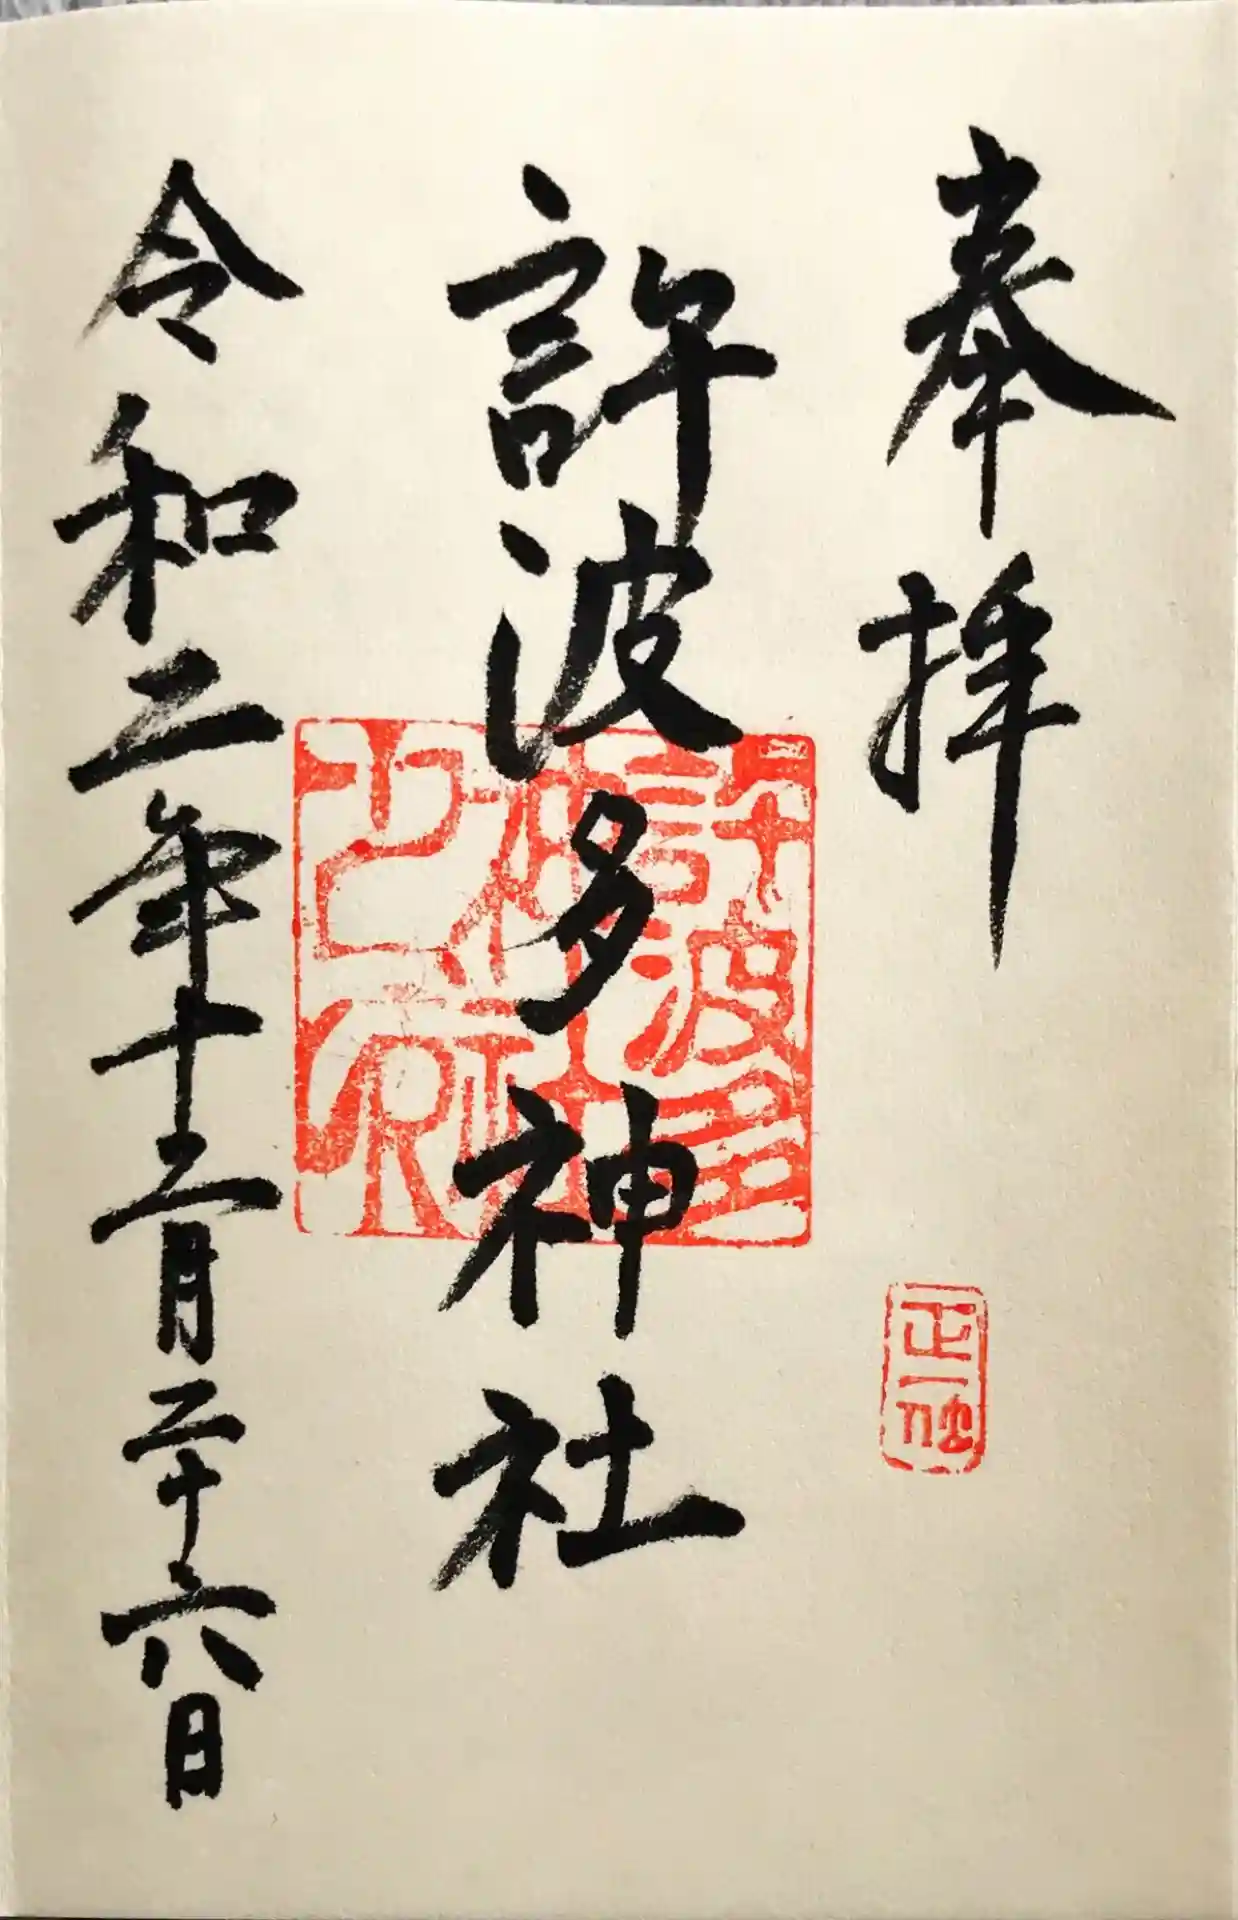 奉拝
正一位
許波多神社
許波多神社之印
令和二年十二月二十六日